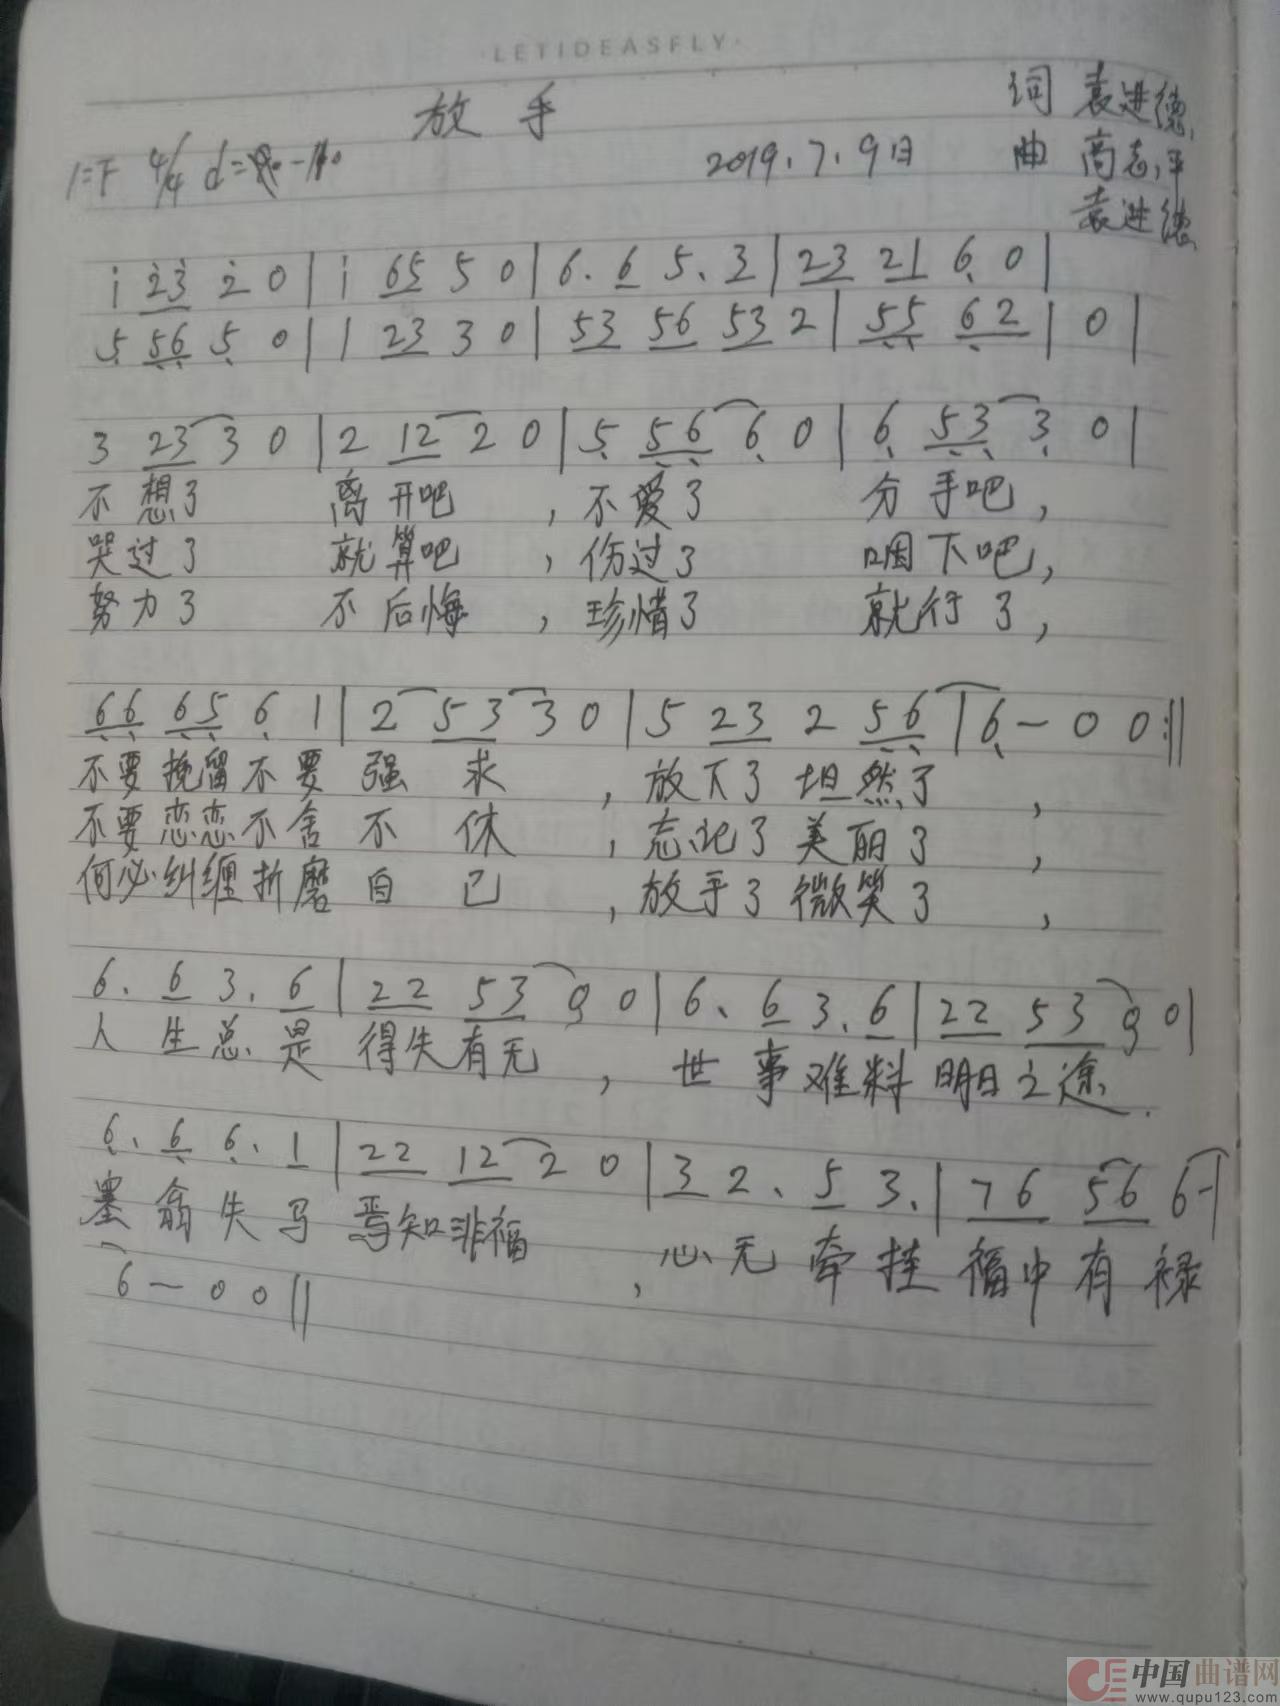 ·LETIDEASFLY·
放手
词 袁进德
1=F 4/4
2019.7.9日 曲 高志平
袁进德
i 2̇3̇ 2̇ 0 | i 65 5 0 | 6. 6 5. 3 | 23 21 6̣ 0 |
5̣ 5̣6̣ 5̣ 0 | 1 23 3 0 | 53 56 53 2 | 5̣5̣ 6̣2 | 0 |
3 23 3 0 | 2 12 2 0 | 5̣ 5̣6̣ 6̣ 0 | 6̣ 5̣3̣ 3̣ 0 |
不想了 离开吧 , 不爱了 分手吧,
哭过了 就算吧 , 伤过了 咽下吧,
努力了 不后悔 , 珍惜了 就行了,
6̣6̣ 6̣5̣ 6̣ 1 | 2 53 3 0 | 5 23 2 5̣6̣ | 6̣ — 0 0 :||
不要挽留不要强求 , 放下了坦然了 ,
不要恋恋不舍不休 , 忘记了美丽了 ,
何必纠缠折磨自己 , 放手了微笑了 ,
6. 6 3. 6 | 22 53 0 | 6. 6 3. 6 | 22 53 0 |
人生总是得失有无 , 世事难料明日之途.
6̣. 6̣ 6̣. 1 | 22 12 2 0 | 3 2. 5 3. | 76 56 6- |
塞翁失马焉知非福 , 心无牵挂福中有禄
6 — 0 0 ||
中国曲谱网
www.qupu123.com